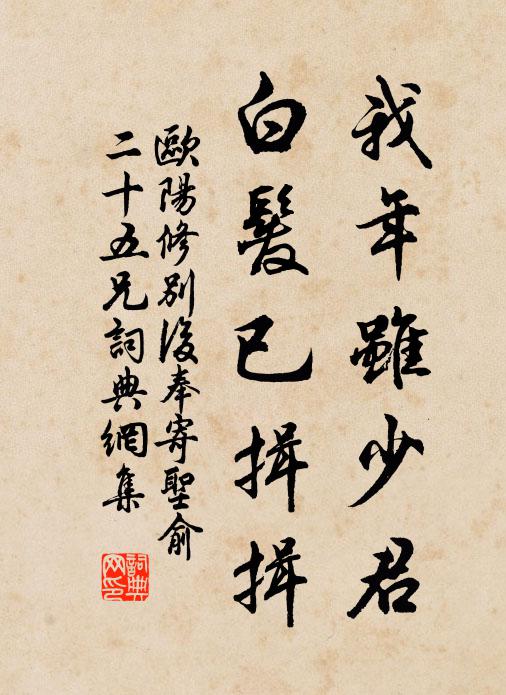 我年雖少君
白髮已揖揖
歐陽修別後奉寄聖俞
二十五兄詞典網集
詞典
网印